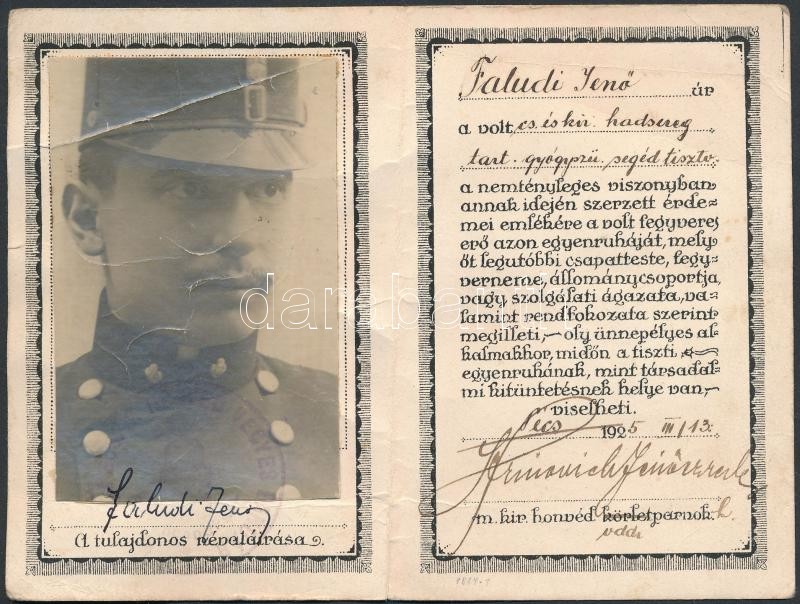 Faludi Jenő
A tulajdonos névaláírása.
Faludi Jenő úr
a volt cs. és kir. hadsereg
tart. gyógysz. segéd tisztv.
a nemtényleges viszonyban
annak idején szerzett érde-
mei emlékére a volt fegyveres
erő azon egyenruháját, mely
őt legutóbbi csapatteste, fegy-
verneme, állománycsoportja,
vagy szolgálati ágazata, va-
lamint rendfokozata szerint
megilleti, – oly ünnepélyes al-
kalmakkor, midőn a tiszti
egyenruhának, mint társadal-
mi kitüntetésnek helye van, –
viselheti.
Pécs 1925 III/13.
m. kir. honvéd körletparnok.
darabanth